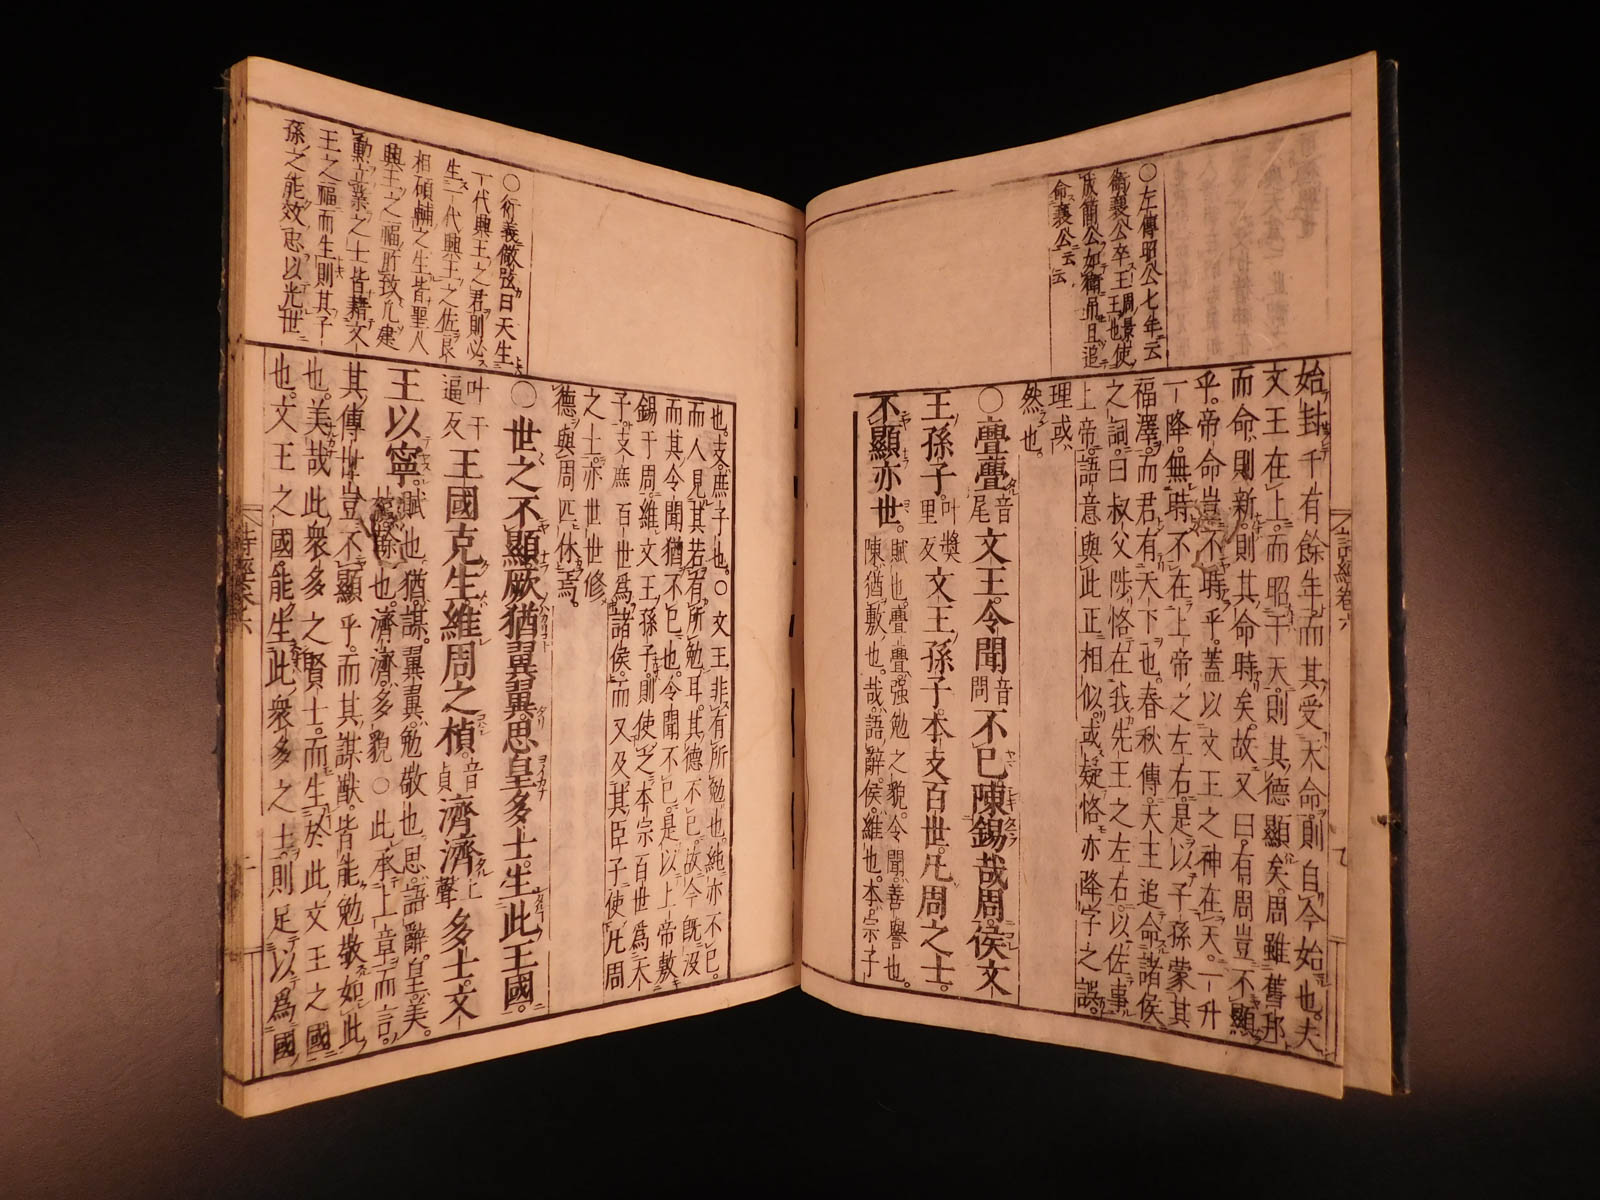 ○左傳昭公七年云
衛襄公卒王周景使
王也
成簡公如衛吊且追
命襄公云云
始封千有餘年而其受天命則自今始也夫
文王在上而昭于天則其德顯矣周雖舊邦
而命則新則其命時矣故又曰有周豈不顯
乎帝命豈不時乎蓋以文王之神在天一升
一降無時不在上帝之左右是以子孫蒙其
福澤而君有天下也春秋傳天王追命諸侯
之詞曰叔父陟恪在我先王之左右以佐事
上帝語意與此正相似或疑恪亦降字之誤
理或
然也
○亹亹音尾文王令聞音問不已陳錫哉周侯文
王孫子叶獎里反文王孫子本支百世凡周之士
不顯亦世賦也亹亹強勉之貌令聞善譽也
陳猶敷也哉語辭侯維也本宗子
也支庶子也○文王非有所勉也純亦不已
而人見其若有所勉耳其德不已故今既沒
而其令聞猶不已也令聞不已是以上帝敷
錫于周維文王孫子則使之本宗百世爲天
子支庶百世爲諸侯而又及其臣子使凡周
之士亦世世修
德與周匹休焉
○世之不顯厥猶翼翼思皇多士生此王國
叶于逼反王國克生維周之楨音貞濟濟上聲多士文
王以寧賦也猶謀翼翼勉敬也思語辭皇美
楨榦也濟濟多貌○此承上章而言
其傳世豈不顯乎而其謀猷皆能勉敬如此
也美哉此衆多之賢士而生於此文王之國
也文王之國能生此衆多之士則足以爲國
○衍義徵弦曰天生
一代興王之君則必
生一代興王之佐良
相碩輔之生皆聖人
興王之福所致凡建
勳立業之士皆藉文
王之福而生則其子
孫之能效忠以光世
詩經卷六